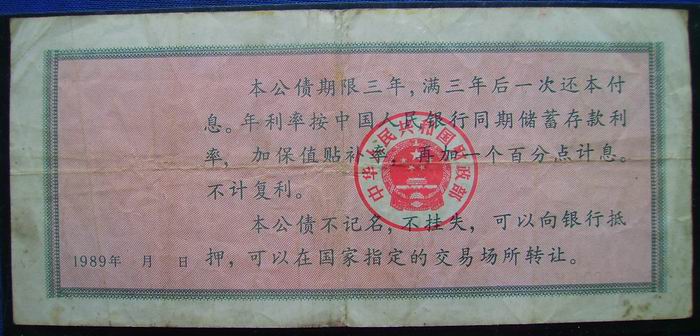 本公债期限三年，满三年后一次还本付
息。年利率按中国人民银行同期储蓄存款利
率，加保值贴补率，再加一个百分点计息。
不计复利。
本公债不记名，不挂失，可以向银行抵
押，可以在国家指定的交易场所转让。
1989年 月 日
中华人民共和国财政部